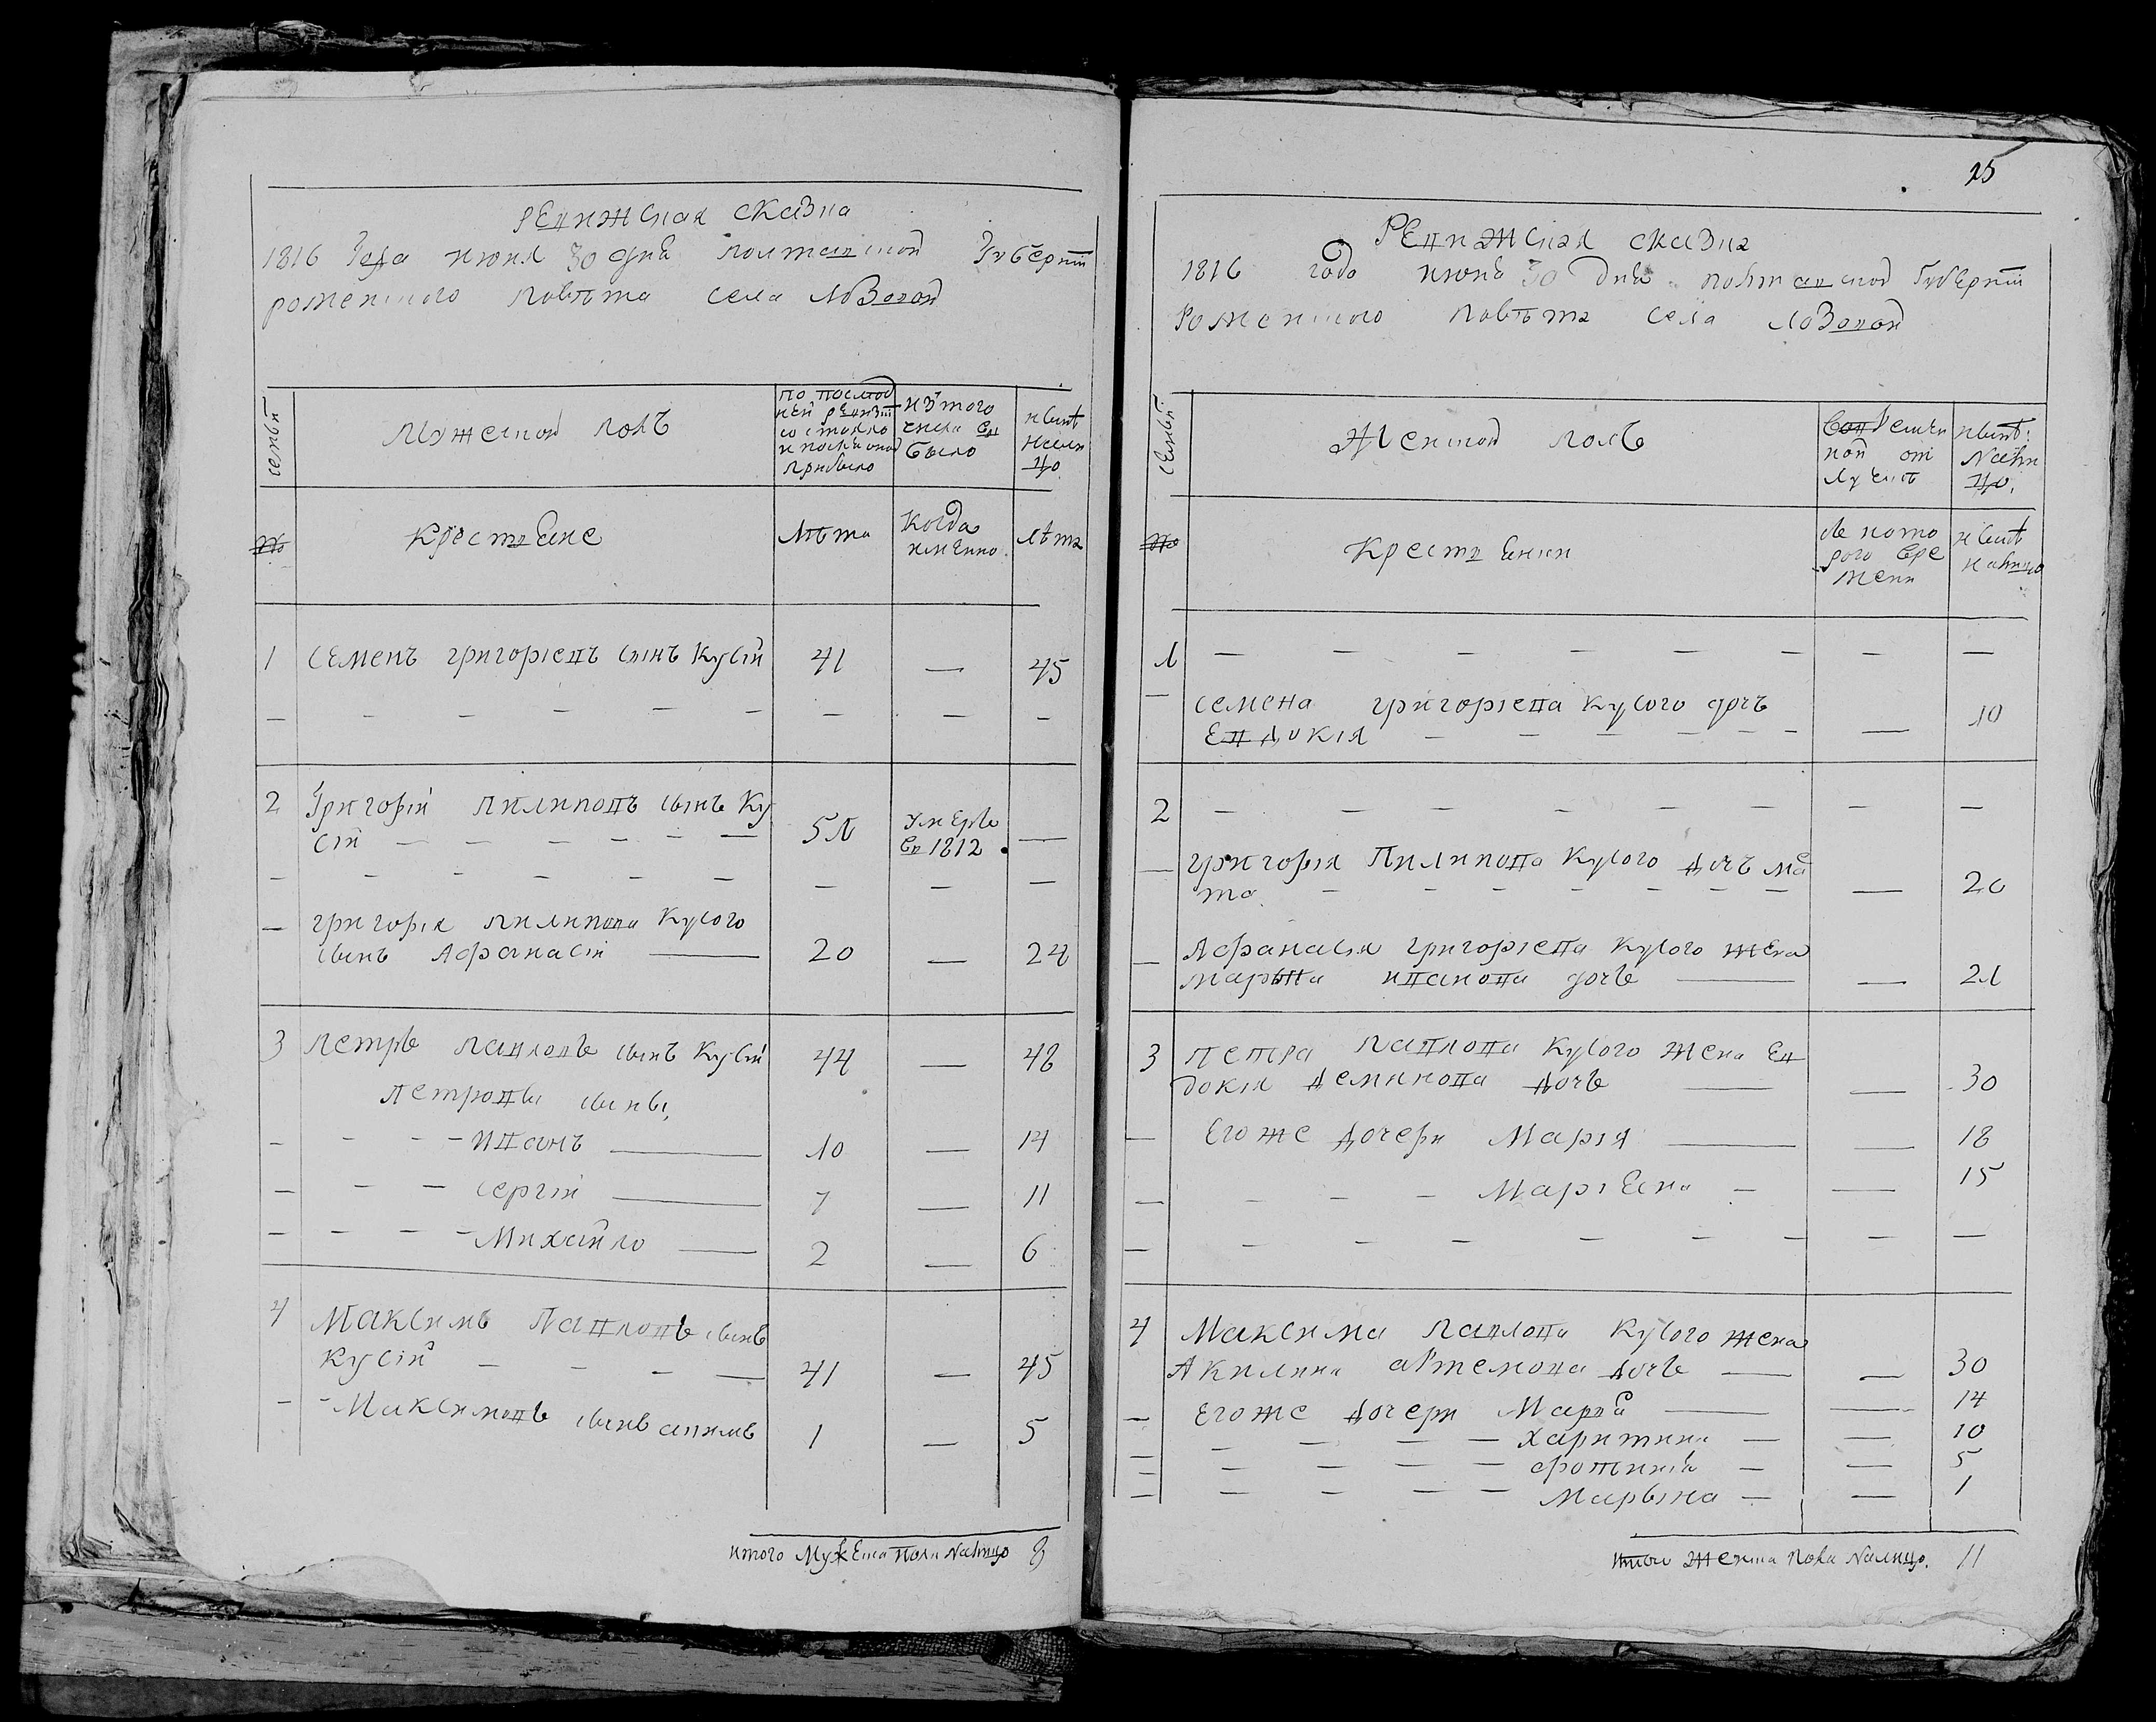 РЕвижская сказка
1816 Года июня 30 дня полтавской Губернїи
роменского повѣта села ЛоЗовой
семьи
Мужеской полъ
по послед
ней ревизїи
состояло
и после оной
прибыло
изъ того
числа вы
было
ныне
нали
цо
№
крестъяне
лѣта
когда
имянно
лѣта
1 семенъ григориевъ сынъ Кусїй 41 — 45
2 Григорїй пилиповъ сынъ Ку
сїй 51 умеръ
въ 1812 —
григорїя пилипова Кусого
сынъ Афанасїй 20 — 24
3 петръ павловъ сынъ Кусїй 44 — 48
петровы сыны
иванъ 10 — 14
сергїй 7 — 11
Михайло 2 — 6
4 Максимъ павловъ сынъ
Кусїй 41 — 45
Максимовъ сынъ 1 — 5
итого Мужеска полу налицо 8
25
РЕвижская сказка
1816 года июня 30 дня полтавской Губернїи
Роменского повѣта села ЛоЗовой
семьи
Женской полъ
во времен
ной от
лучкѣ
нынѣ
нали
цо
№
Крестьянки
съ кото
рого вре
мени
нынѣ
налицо
1
семена григориева кусого дочъ
Евдокїя — 10
2
григорїя пилипова Кусого дочъ
20
Афанасїя григориева кусого жена
марьѣна иванова дочь — 21
3 петра павлова кусого жена Ев
докїя Деминова дочь — 30
Его же дочери Марїя — 18
— 15
4 Максима павлова Кусого жена
Акилина артемова дочь — 30
его же дочери Марїя — 14
харитина — 10
— 5
Марьяна — 1
итого Женска пола налицо. 11